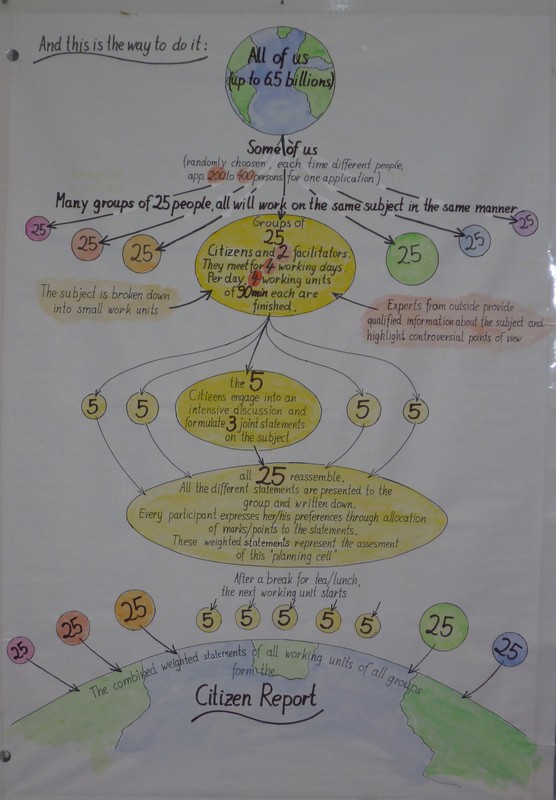 And this is the way to do it:
All of us
(up to 6.5 billions)
Some of us
(randomly choosen, each time different people,
app. 200 to 400 persons for one application)
Many groups of 25 people, all will work on the same subject in the same manner
25
25
25
25
25
25
Groups of
25
Citizens and 2 facilitators.
They meet for 4 working days
Per day 4 working units
of 90min each are
finished.
The subject is broken down
into small work units
Experts from outside provide
qualified information about the subject and
highlight controversial points of view
5
5
the 5
Citizens engage into an
intensive discussion and
formulate 3 joint statements
on the subject
5
5
all 25 reassemble.
All the different statements are presented to the
group and written down.
Every participant expresses her/his preferences through allocation
of marks/points to the statements.
These weighted statements represent the assesment
of this "planning cell"
After a break for tea/lunch,
the next working unit starts
25
25
25
5
5
5
5
5
25
25
The combined weighted statements of all working units of all groups
form the
Citizen Report